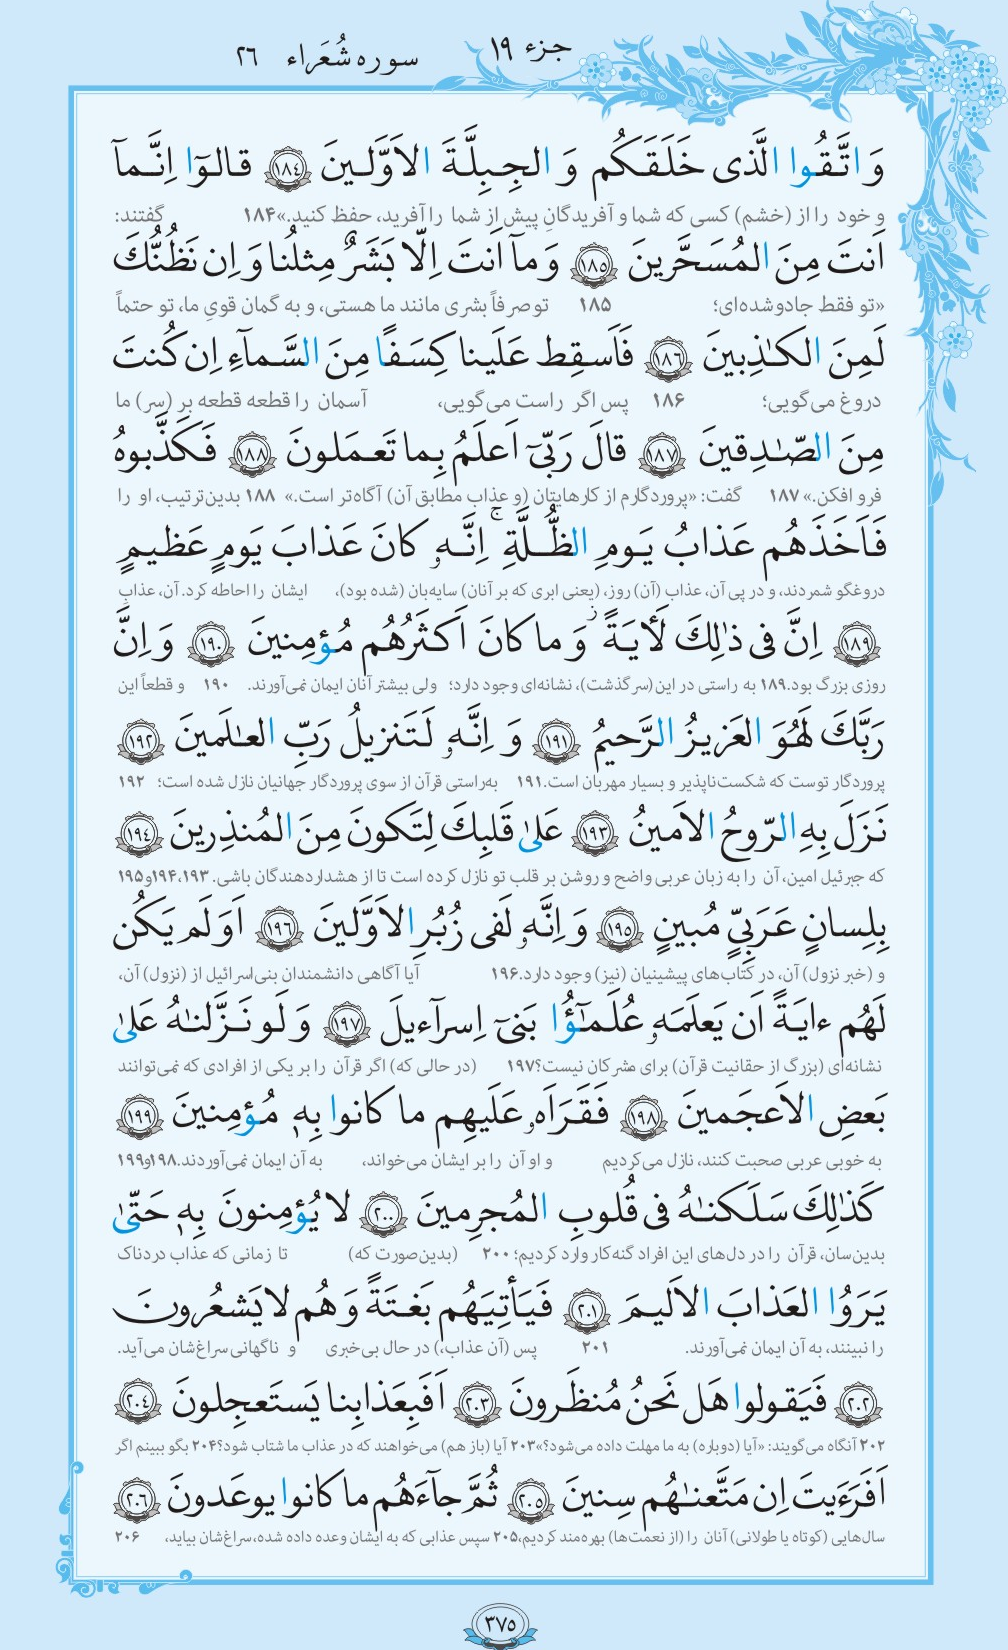 جزء ۱۹
سوره شُعَراء ۲۶
وَ اتَّقُوا الَّذی خَلَقَکُم وَ الجِبِلَّةَ الاَوَّلـینَ ﴿١٨٤﴾ قالوٓا اِنَّمآ
و خود را از (خشم) کسی که شما و آفریدگانِ پیش از شما را آفرید، حفظ کنید.» ۱۸۴ گفتند:
اَنتَ مِنَ المُسَحَّرینَ ﴿١٨٥﴾ وَ مآ اَنتَ اِلّا بَشَرٌ مِثلُنا وَ اِن نَظُنُّکَ
«تو فقط جادوشده‌ای؛ ۱۸۵ تو صرفاً بشری مانند ما هستی، و به گمان قویِ ما، تو حتماً
لَمِنَ الکـٰذِبینَ ﴿١٨٦﴾ فَاَسقِط عَلَینا کِسَفًا مِنَ السَّمآءِ اِن کُنتَ
دروغ می‌گویی؛ ۱۸۶ پس اگر راست می‌گویی، آسمان را قطعه قطعه بر (سر) ما
مِنَ الصّـٰدِقینَ ﴿١٨٧﴾ قالَ رَبّیٓ اَعلَمُ بِما تَعمَلونَ ﴿١٨٨﴾ فَکَذَّبوهُ
فرو افکن.» ۱۸۷ گفت: «پروردگارم از کارهایتان (و عذاب مطابق آن) آگاه‌تر است.» ۱۸۸ بدین‌ترتیب، او را
فَاَخَذَهُم عَذابُ یَومِ الظُّلَّةِ ۚ اِنَّهٗ کانَ عَذابَ یَومٍ عَظیمٍ
دروغگو شمردند، و در پی آن، عذاب (آن) روز، (یعنی ابری که بر آنان) سایه‌بان (شده بود)، ایشان را احاطه کرد. آن، عذابِ
﴿١٨٩﴾ اِنَّ فی ذٰلِکَ لَأٓیَةً ز وَ ما کانَ اَکثَرُهُم مُؤمِنینَ ﴿١٩٠﴾ وَ اِنَّ
روزی بزرگ بود. ۱۸۹ به راستی در این (سرگذشت)، نشانه‌ای وجود دارد؛ ولی بیشتر آنان ایمان نمی‌آورند. ۱۹۰ و قطعاً این
رَبَّکَ لَهُوَ العَزیزُ الرَّحیمُ ﴿١٩١﴾ وَ اِنَّهٗ لَتَنزیلُ رَبِّ العـٰلَمینَ ﴿١٩٢﴾
پروردگار توست که شکست‌ناپذیر و بسیار مهربان است. ۱۹۱ به‌راستی قرآن از سوی پروردگار جهانیان نازل شده است؛ ۱۹۲
نَزَلَ بِهِ الرّوحُ الاَمینُ ﴿١٩٣﴾ عَلیٰ قَلبِکَ لِتَکونَ مِنَ المُنذِرینَ ﴿١٩٤﴾
که جبرئیل امین، آن را به زبان عربی واضح و روشن بر قلب تو نازل کرده است تا از هشداردهندگان باشی. ۱۹۳، ۱۹۴و۱۹۵
بِلِسانٍ عَرَبِیٍّ مُبینٍ ﴿١٩٥﴾ وَ اِنَّهٗ لَفی زُبُرِ الاَوَّلینَ ﴿١٩٦﴾ اَوَلَم یَکُن
و (خبر نزول) آن، در کتاب‌های پیشینیان (نیز) وجود دارد. ۱۹۶ آیا آگاهی دانشمندان بنی‌اسرائیل از (نزول) آن،
لَهُم ءایَةً اَن یَعلَمَهٗ عُلَمـٰٓؤُا بَنیٓ اِسرآءیلَ ﴿١٩٧﴾ وَ لَو نَزَّلنـٰهُ عَلیٰ
نشانه‌ای (بزرگ از حقانیت قرآن) برای مشرکان نیست؟ ۱۹۷ (در حالی که) اگر قرآن را بر یکی از افرادی که نمی‌توانند
بَعضِ الاَعجَمینَ ﴿١٩٨﴾ فَقَرَاَهٗ عَلَیهِم ما کانوا بِهٖ مُؤمِنینَ ﴿١٩٩﴾
به خوبی عربی صحبت کنند، نازل می‌کردیم و او آن را بر ایشان می‌خواند، به آن ایمان نمی‌آوردند. ۱۹۸و۱۹۹
کَذٰلِکَ سَلَکنـٰهُ فی قُلوبِ المُجرِمینَ ﴿٢٠٠﴾ لا یُؤمِنونَ بِهٖ حَتّیٰ
بدین‌سان، قرآن را در دل‌های این افراد گنه‌کار وارد کردیم؛ ۲۰۰ (بدین‌صورت که) تا زمانی که عذاب دردناک
یَرَوُا العَذابَ الاَلیمَ ﴿٢٠١﴾ فَیَأتِیَهُم بَغتَةً وَ هُم لا یَشعُرونَ
را نبینند، به آن ایمان نمی‌آورند. ۲۰۱ پس (آن عذاب،) در حال بی‌خبری و ناگهانی سراغ‌شان می‌آید.
﴿٢٠٢﴾ فَیَقولوا هَل نَحنُ مُنظَرونَ ﴿٢٠٣﴾ اَفَبِعَذابِنا یَستَعجِلونَ ﴿٢٠٤﴾
۲۰۲ آنگاه می‌گویند: «آیا (دوباره) به ما مهلت داده می‌شود؟» ۲۰۳ آیا (باز هم) می‌خواهند که در عذاب ما شتاب شود؟ ۲۰۴ بگو ببینم اگر
اَفَرَءَیتَ اِن مَتَّعنـٰهُم سِنینَ ﴿٢٠٥﴾ ثُمَّ جآءَهُم ما کانوا یوعَدونَ ﴿٢٠٦﴾
سال‌هایی (کوتاه یا طولانی) آنان را (از نعمت‌ها) بهره‌مند کردیم، ۲۰۵ سپس عذابی که به ایشان وعده داده شده، سراغ‌شان بیاید، ۲۰۶
۳۷۵